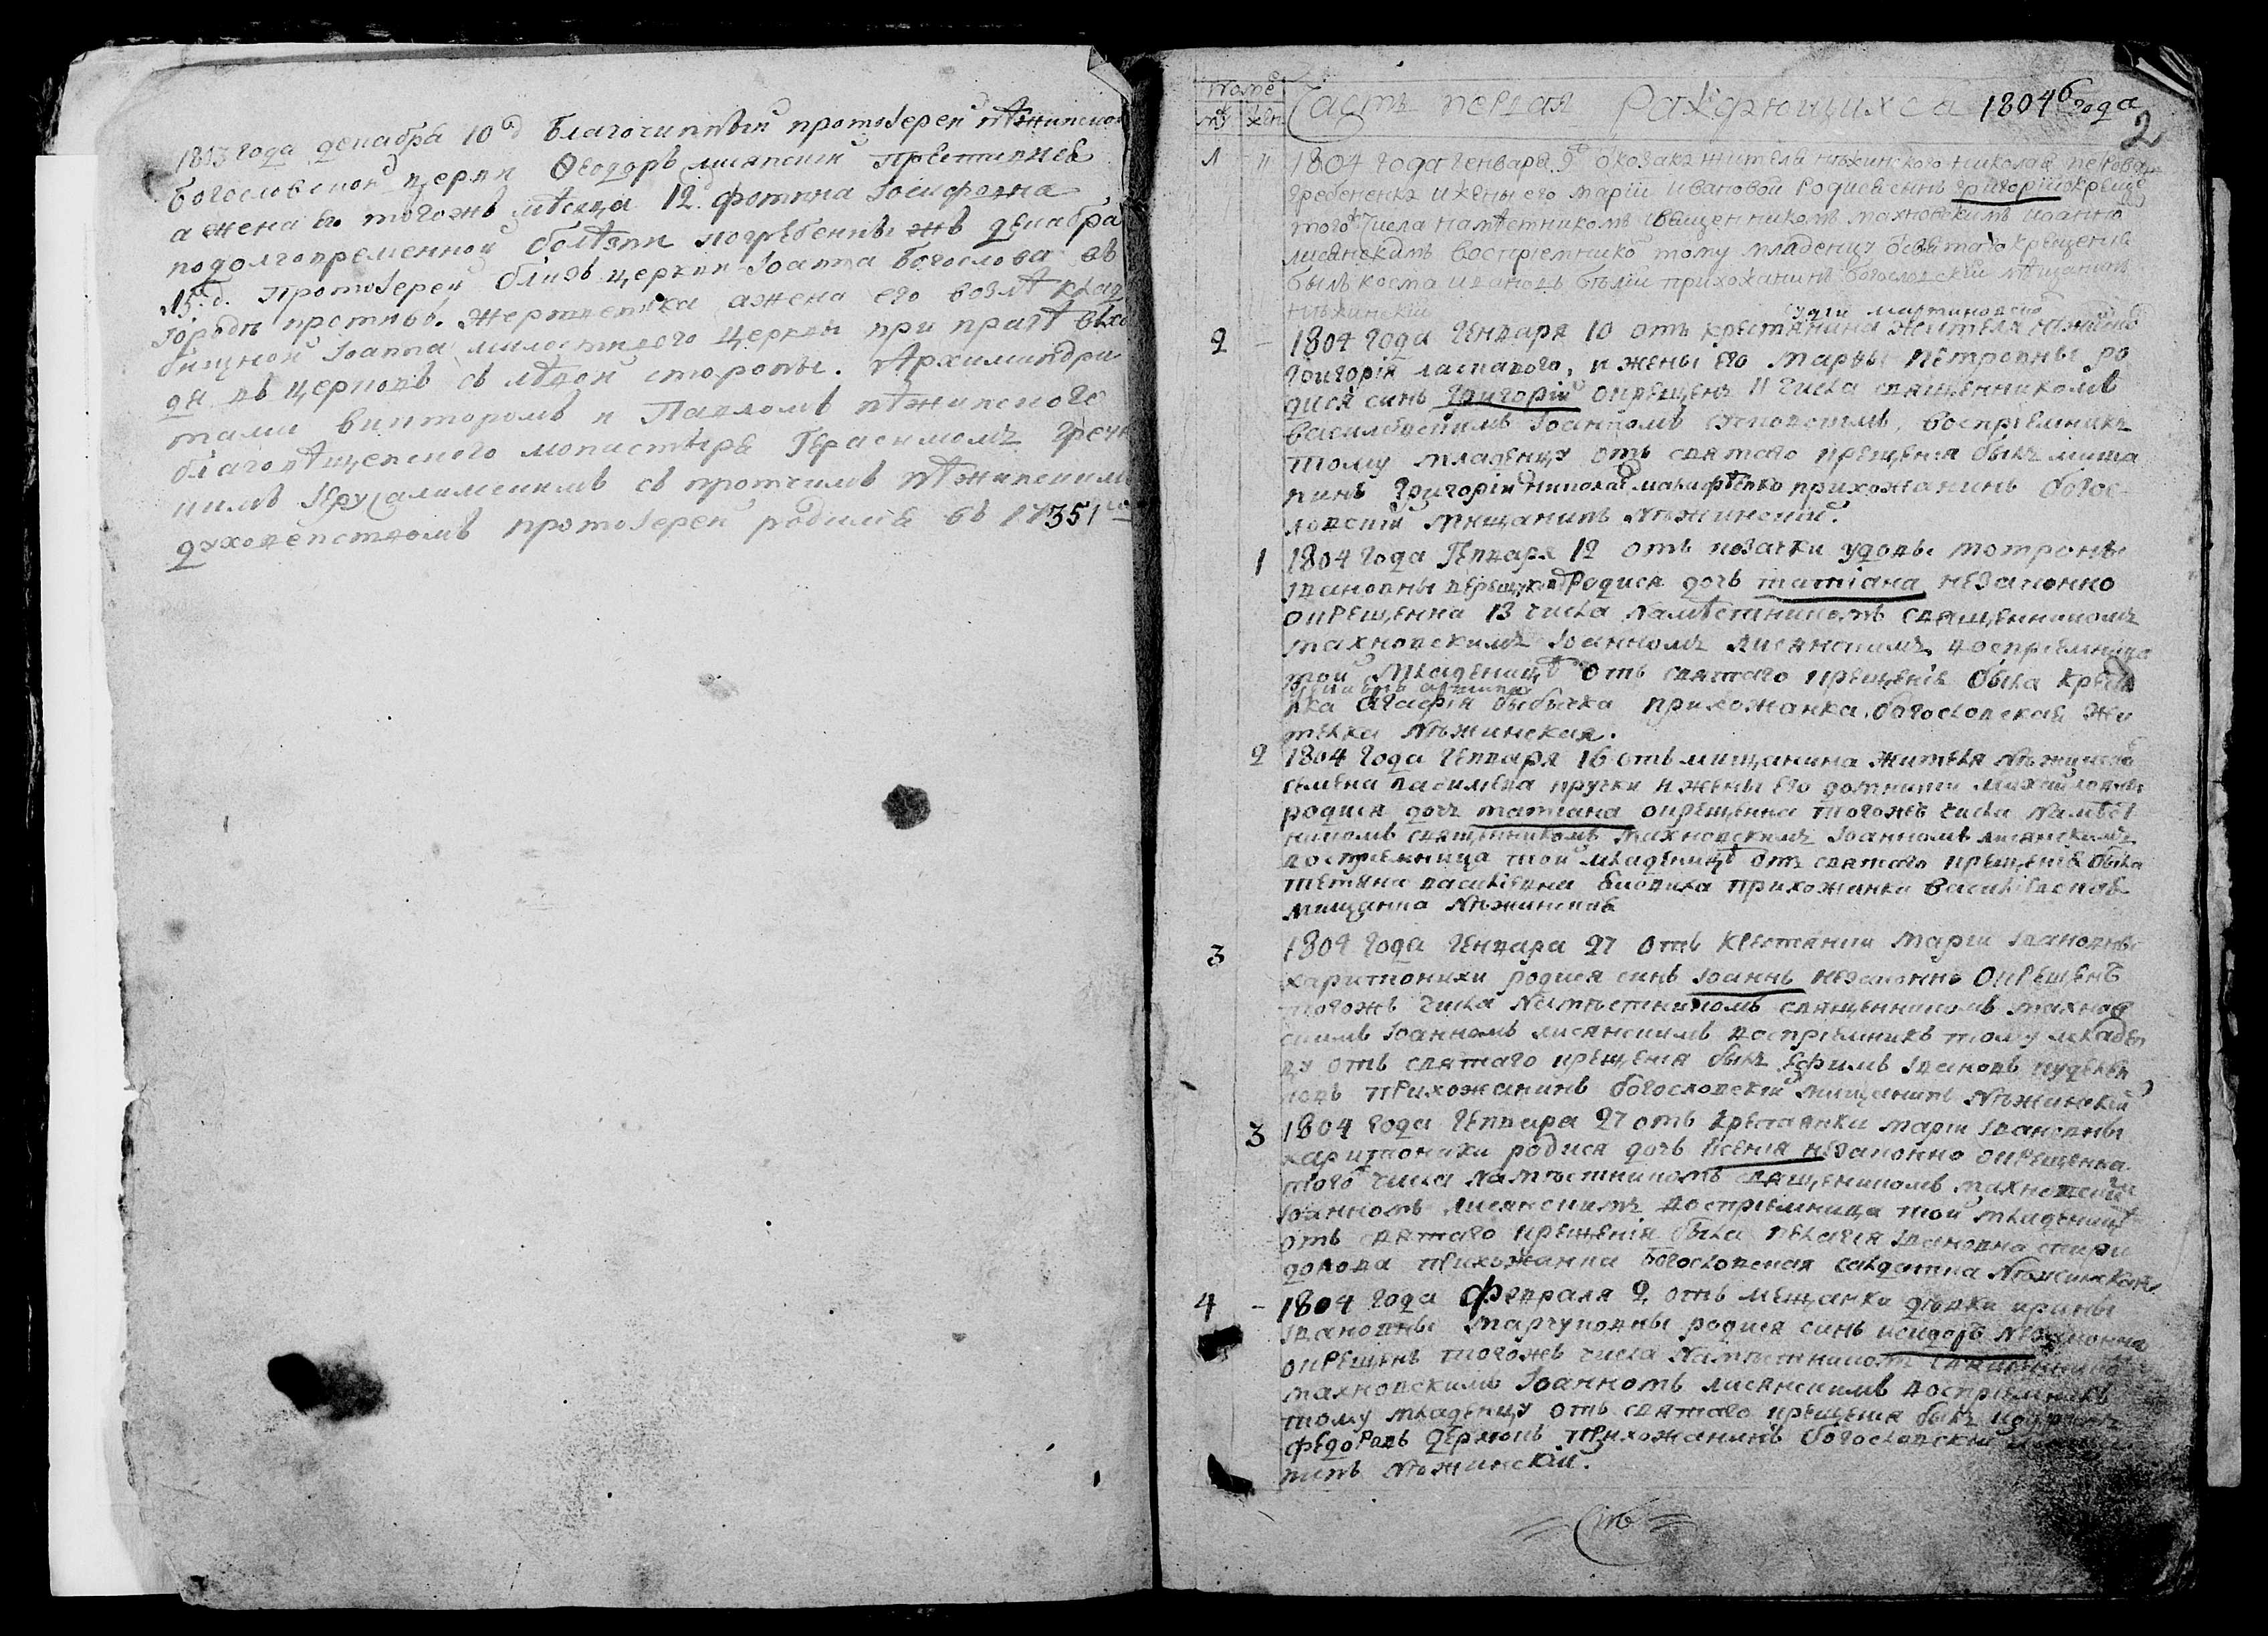 1813 года декабра 10д благочинный протоіерей нѣжинской
богословской церкви Ѳеодоръ лисянскій преставися
а жена его тогожъ мѣсяца 12 д фотина Іосифовна
по долговременной болѣзни погребенны жъ декабра
15.д. протоіерей близъ церкви Іоанна Богослова въ
городѣ противъ жертвенника а жена его возлѣ клад
бищной Іоанна милостивого церкви при
въ церковь съ лѣвой стороны. Архимандри
тами викторомъ и Павломъ нѣжинского
благовѣщенского монастыря Герасимомъ Грече
скимъ Іерусалимскимъ съ протчимъ нѣжинскимъ
духовенствомъ протоіерей родился въ 1735
Часть первая Раждающихся 1804 года
2
1 1804 года Генвара 9 о козака жителя нѣжинского николая петрова
гребеника и жены его маріи ивановой родися сынъ григорій окреще
того числа намѣстникомъ священникомъ махновскимъ иоанно
лисянскимъ восприемнико тому младенцу о святаго крещения
былъ косма ивановъ прихожанинъ богословскій мѣщанинъ
нѣжинскій
2 1804 года Генваря 10 отъ крестянина жителя нѣжинс
григорія ласнаваго, и жены его марѳы петровны ро
дися синъ григорій окрещенъ 11 числа священникомъ
василевскимъ Іоанномъ воспріемникъ
тому младенцу отъ святаго крещенія былъ миша
нинъ григорій николай прихожанинъ богос
ловскій мищанинъ нѣжинскій.
1 1804 года Генваря 12 отъ козачки удовы мотроны
Івановны родися дочь татіана незаконно
окрещенна 13 числа намѣстникомъ священникомъ
махновскимъ Іоанномъ лисянскимъ воспріемница
той младеницѣ отъ святаго крещенія была кресн
нка агафія прихожанка богословская жи
телка нѣжинская.
2 1804 года Генваря 16 отъ мищанина жителя нѣжинско
семена василева пручки и жены его домники михайловны
родися дочъ татіана окрещенна тогожъ числа намѣст
никомъ священникомъ махновскимъ Іоанномъ лисянскимъ
воспріемница той младеницѣ отъ святаго крещенія была
тетяна василіевна прихожанка василіевская
мищанка нѣжинская
3 1804 года Генвара 27 отъ крестянки маріи Івановны
харитонихи родися синъ Іоаннъ незаконнъ окрещенъ
тогожъ числа намѣстникомъ священникомъ махнов
скимъ Іоанномъ лисянскимъ воспріемникъ тому младен
цу отъ святаго крещенія былъ Ефимъ Івановъ
прихожанинъ богословскій мищанинъ нѣжинскій
3 1804 года Генвара 27 отъ крестянки маріи Івановны
харитонихи родися дочь Ксенія незаконно окрещенна
того числа намѣстникомъ священикомъ махновски
Іоанномъ лисянскимъ воспріемница той младеницѣ
отъ святаго крещенія была пелагея Івановна спири
донова прихожанка богословская салдатка нѣжинская
4 1804 года Февраля 2, отъ мещанки дѣвки ирины
Івановны марчуковны родися синъ исидоръ незаконно
окрещенъ тогожъ числа намѣстникомъ священико
махновскимъ Іоанномъ лисянскимъ воспріемникъ
тому младенцу отъ святаго крещенія былъ
федоровъ прихожанинъ богословскій мищан
нинъ нѣжинскій.